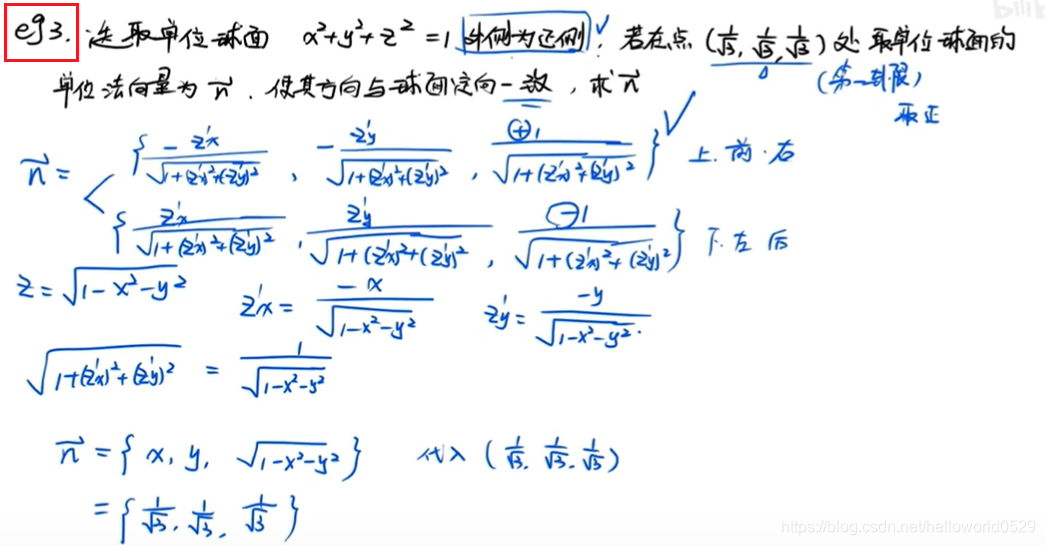 bilibili
eg3. 选取单位球面 x²+y²+z²=1 外侧为正侧. 若在点 (1/√3, 1/√3, 1/√3) 处 取单位球面的
单位法向量为 n⃗. 使其方向与球面定向一致, 求 n⃗ (第一卦限)
取正
n⃗ = { -z'x/√(1+(z'x)²+(z'y)²), -z'y/√(1+(z'x)²+(z'y)²), ⊕1/√(1+(z'x)²+(z'y)²) } ✓ 上.前.右
{ z'x/√(1+(z'x)²+(z'y)²), z'y/√(1+(z'x)²+(z'y)²), ⊖1/√(1+(z'x)²+(z'y)²) } 下.左 后
z=√(1-x²-y²) z'x= -x/√(1-x²-y²) z'y= -y/√(1-x²-y²).
√(1+(z'x)²+(z'y)²) = 1/√(1-x²-y²)
n⃗ = { x, y, √(1-x²-y²) } 代入 (1/√3, 1/√3, 1/√3)
= { 1/√3, 1/√3, 1/√3 }
https://blog.csdn.net/helloworld0529